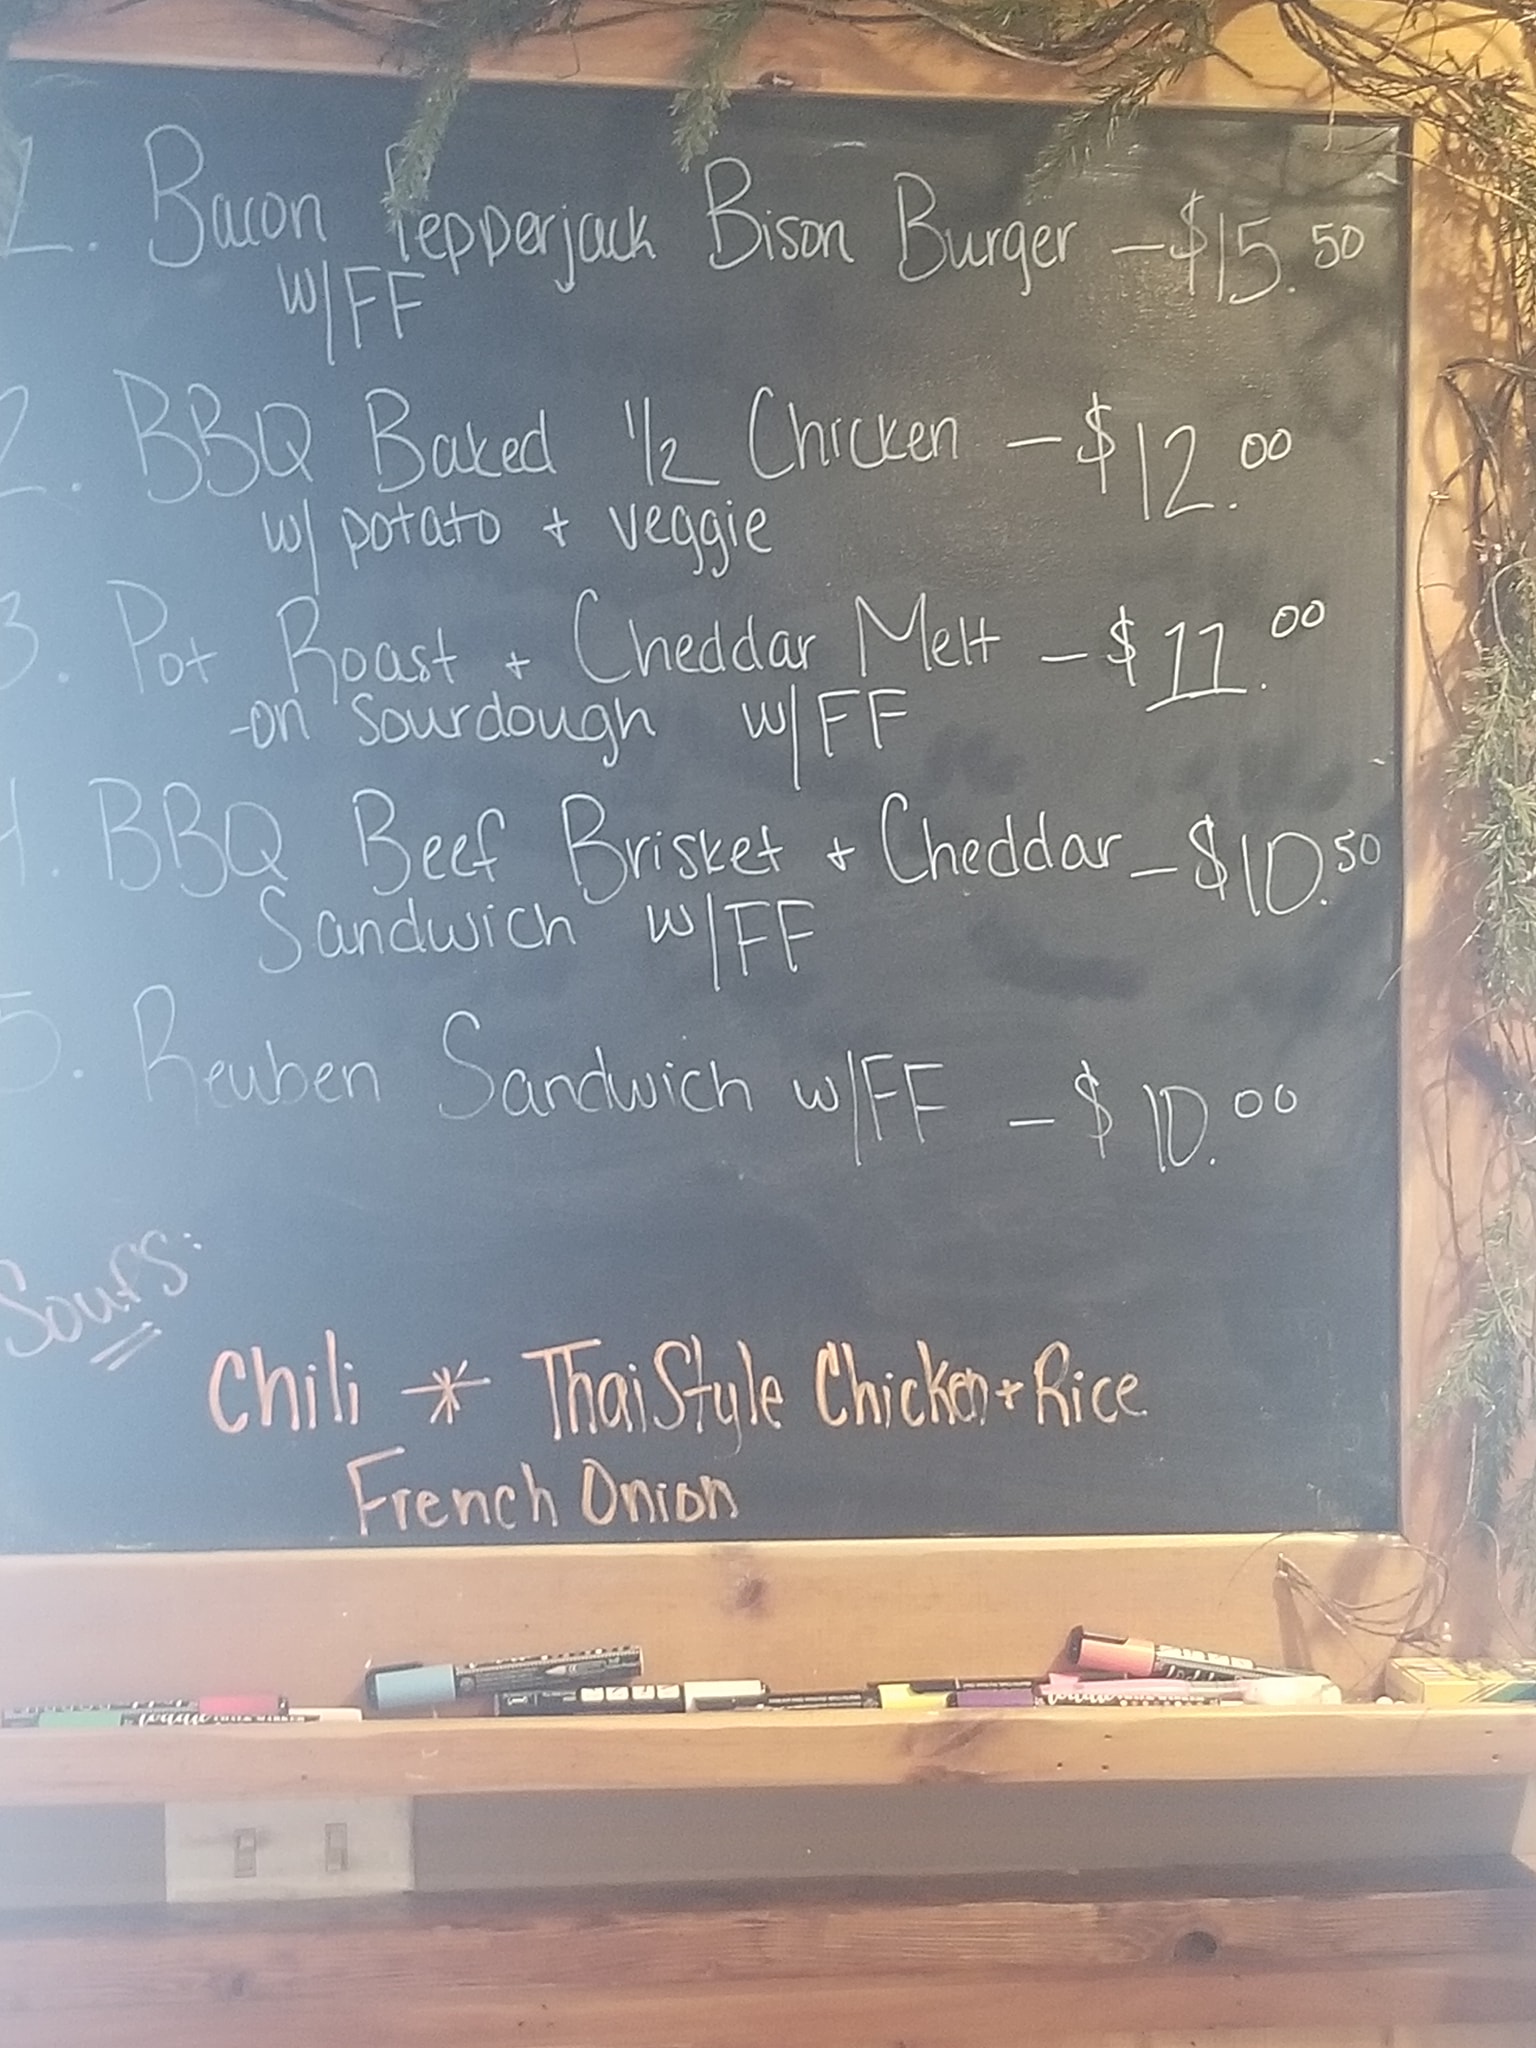 1. Bacon Pepperjack Bison Burger - $15.50
w/FF
2. BBQ Baked 1/2 Chicken - $12.00
w/ potato + veggie
3. Pot Roast + Cheddar Melt - $11.00
-on sourdough w/FF
4. BBQ Beef Brisket + Cheddar - $10.50
Sandwich w/FF
5. Reuben Sandwich w/FF - $10.00
Soups:
Chili * Thai Style Chicken + Rice
French Onion